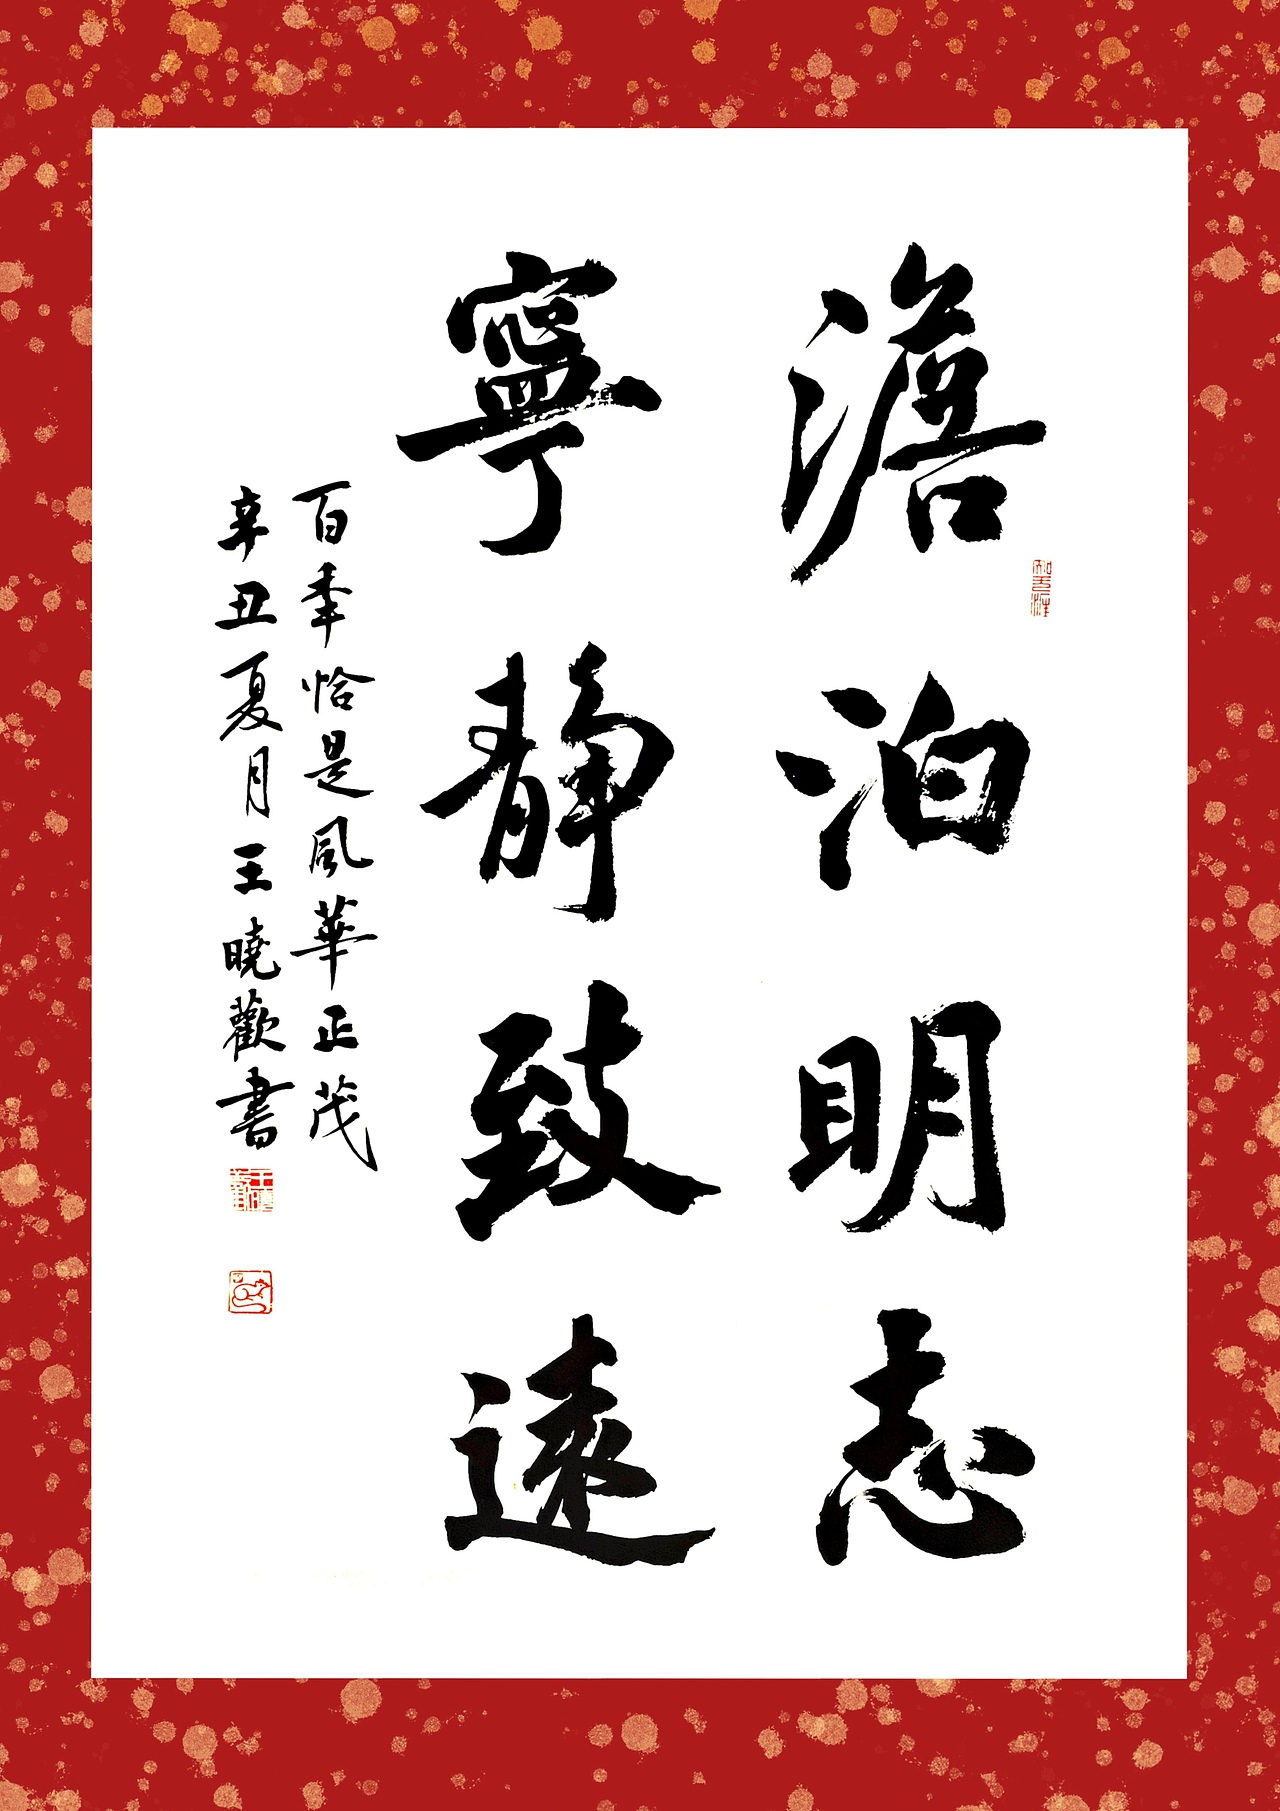 澹泊明志
寧靜致遠
百年恰是風華正茂
辛丑夏月王曉歡書